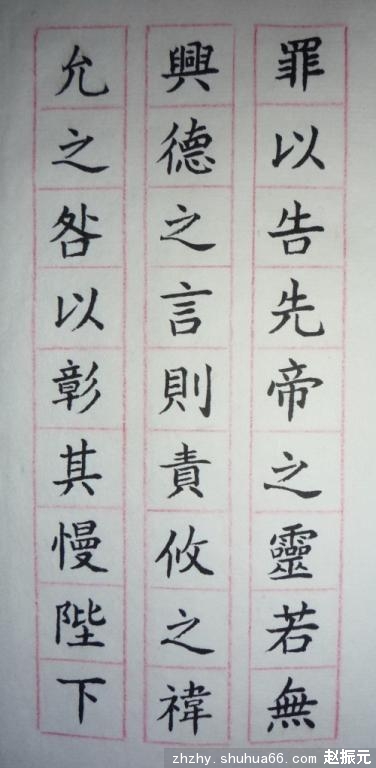 罪以告先帝之靈若無
興德之言則責攸之禕
允之咎以彰其慢陛下
zhzhy.shuhua66.com 赵振元